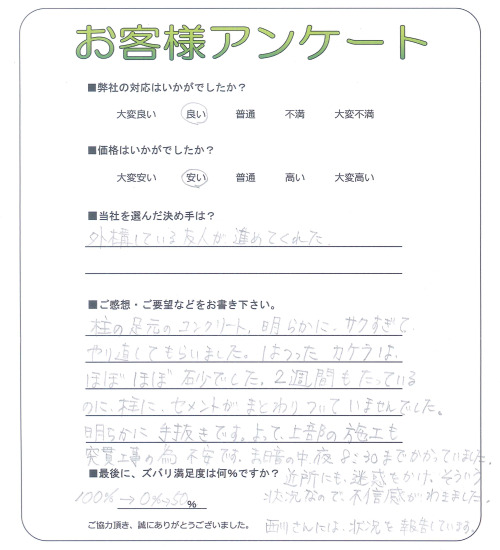 お客様アンケート
■弊社の対応はいかがでしたか？
大変良い 良い 普通 不満 大変不満
■価格はいかがでしたか？
大変安い 安い 普通 高い 大変高い
■当社を選んだ決め手は？
外構している友人が進めてくれた
■ご感想・ご要望などをお書き下さい。
柱の足元のコンクリート、明らかに、サクすぎて、
やり直してもらいました。はつった カケラは、
ほぼ ほぼ 石少でした。2週間も たっている
のに、柱に、セメントが まとわりついていませんでした。
明らかに 手抜きです。よって、上部の施工も
突貫工事の為 不安です。ま暗の中、夜 8:30までかかっていました。
近所にも、迷惑をかけ、そういう
状況なので、不信感がわきました。
■最後に、ズバリ満足度は何％ですか？
100%→0%→50％
ご協力頂き、誠にありがとうございました。
西川さんには、状況を報告しています。